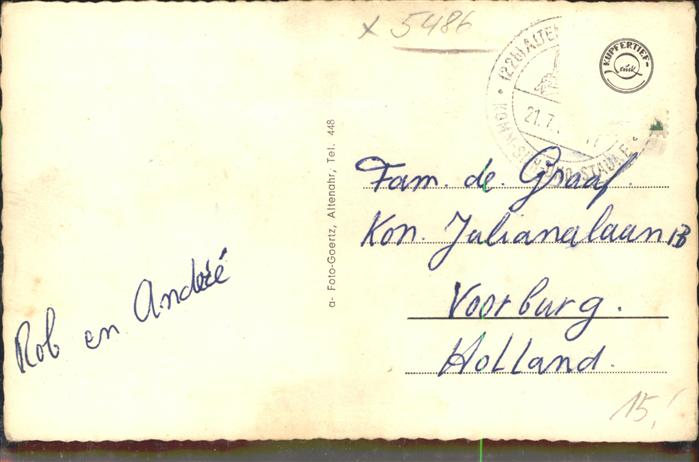 x 5486
(22b) ALTEN
21.7.
KUPFERTIEF-
a- Foto-Goertz, Altenahr, Tel. 448
Fam. de. Graaf.
Kon. Julianalaan
Voorburg.
Holland.
Rob en André
15,!